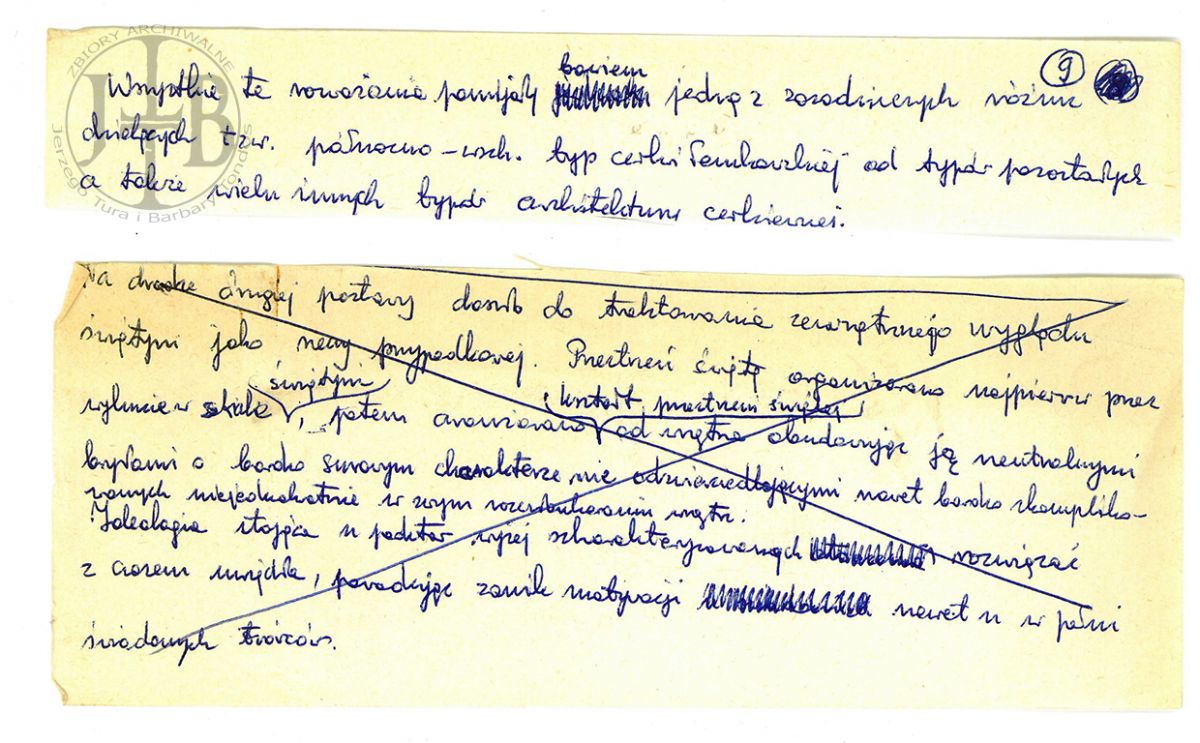 ZBIORY ARCHIWALNE
JTB
Jerzego Tura i Barbary
bowiem 9
Wszystkie te rozważania pomijały jedną z zasadniczych różnic
dzielących tzw. północno-wsch. typ cerkwi łemkowskiej od typów pozostałych
a także wielu innych typów architektury cerkiewnej.
Na drodze drugiej postawy doszło do traktowania zewnętrznego wyglądu
świątyni jako rzeczy przypadkowej. Przestrzeń świętą organizowano najpierw przez
świątyni kształt przestrzeni świętej
wykucie w skale, potem od wnętrza obudowując ją neutralnymi
bryłami o bardzo surowym charakterze nie odzwierciedlającymi nawet bardzo skompliko-
wanych niejednokrotnie w swym rozczłonkowaniu wnętrz.
Ideologia stojąca u podstaw wyżej scharakteryzowanych rozwiązań
z czasem zanik motywacji nawet u w pełni
świadomych twórców.